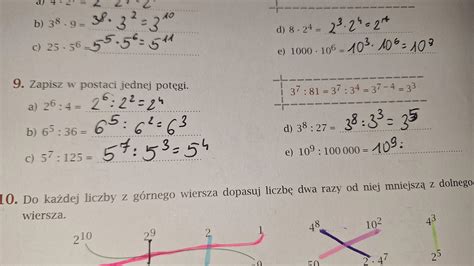 b) 3⁸ · 9 = 3⁸ · 3² = 3¹⁰
c) 25 · 5⁶ = 5⁵ · 5⁶ = 5¹¹
d) 8 · 2⁴ = 2³ · 2⁴ = 2⁷
e) 1000 · 10⁶ = 10³ · 10⁶ = 10⁹
9. Zapisz w postaci jednej potęgi.
3⁷ : 81 = 3⁷ : 3⁴ = 3⁷⁻⁴ = 3³
a) 2⁶ : 4 = 2⁶ : 2² = 2⁴
b) 6⁵ : 36 = 6⁵ : 6² = 6³
c) 5⁷ : 125 = 5⁷ : 5³ = 5⁴
d) 3⁸ : 27 = 3⁸ : 3³ = 3⁵
e) 10⁹ : 100 000 = 10⁹ :
10. Do każdej liczby z górnego wiersza dopasuj liczbę dwa razy od niej mniejszą z dolnego
wiersza.
2¹⁰ 2⁹ 2 1 4⁸ 10² 4³
50 2 · 4⁷ 2⁵